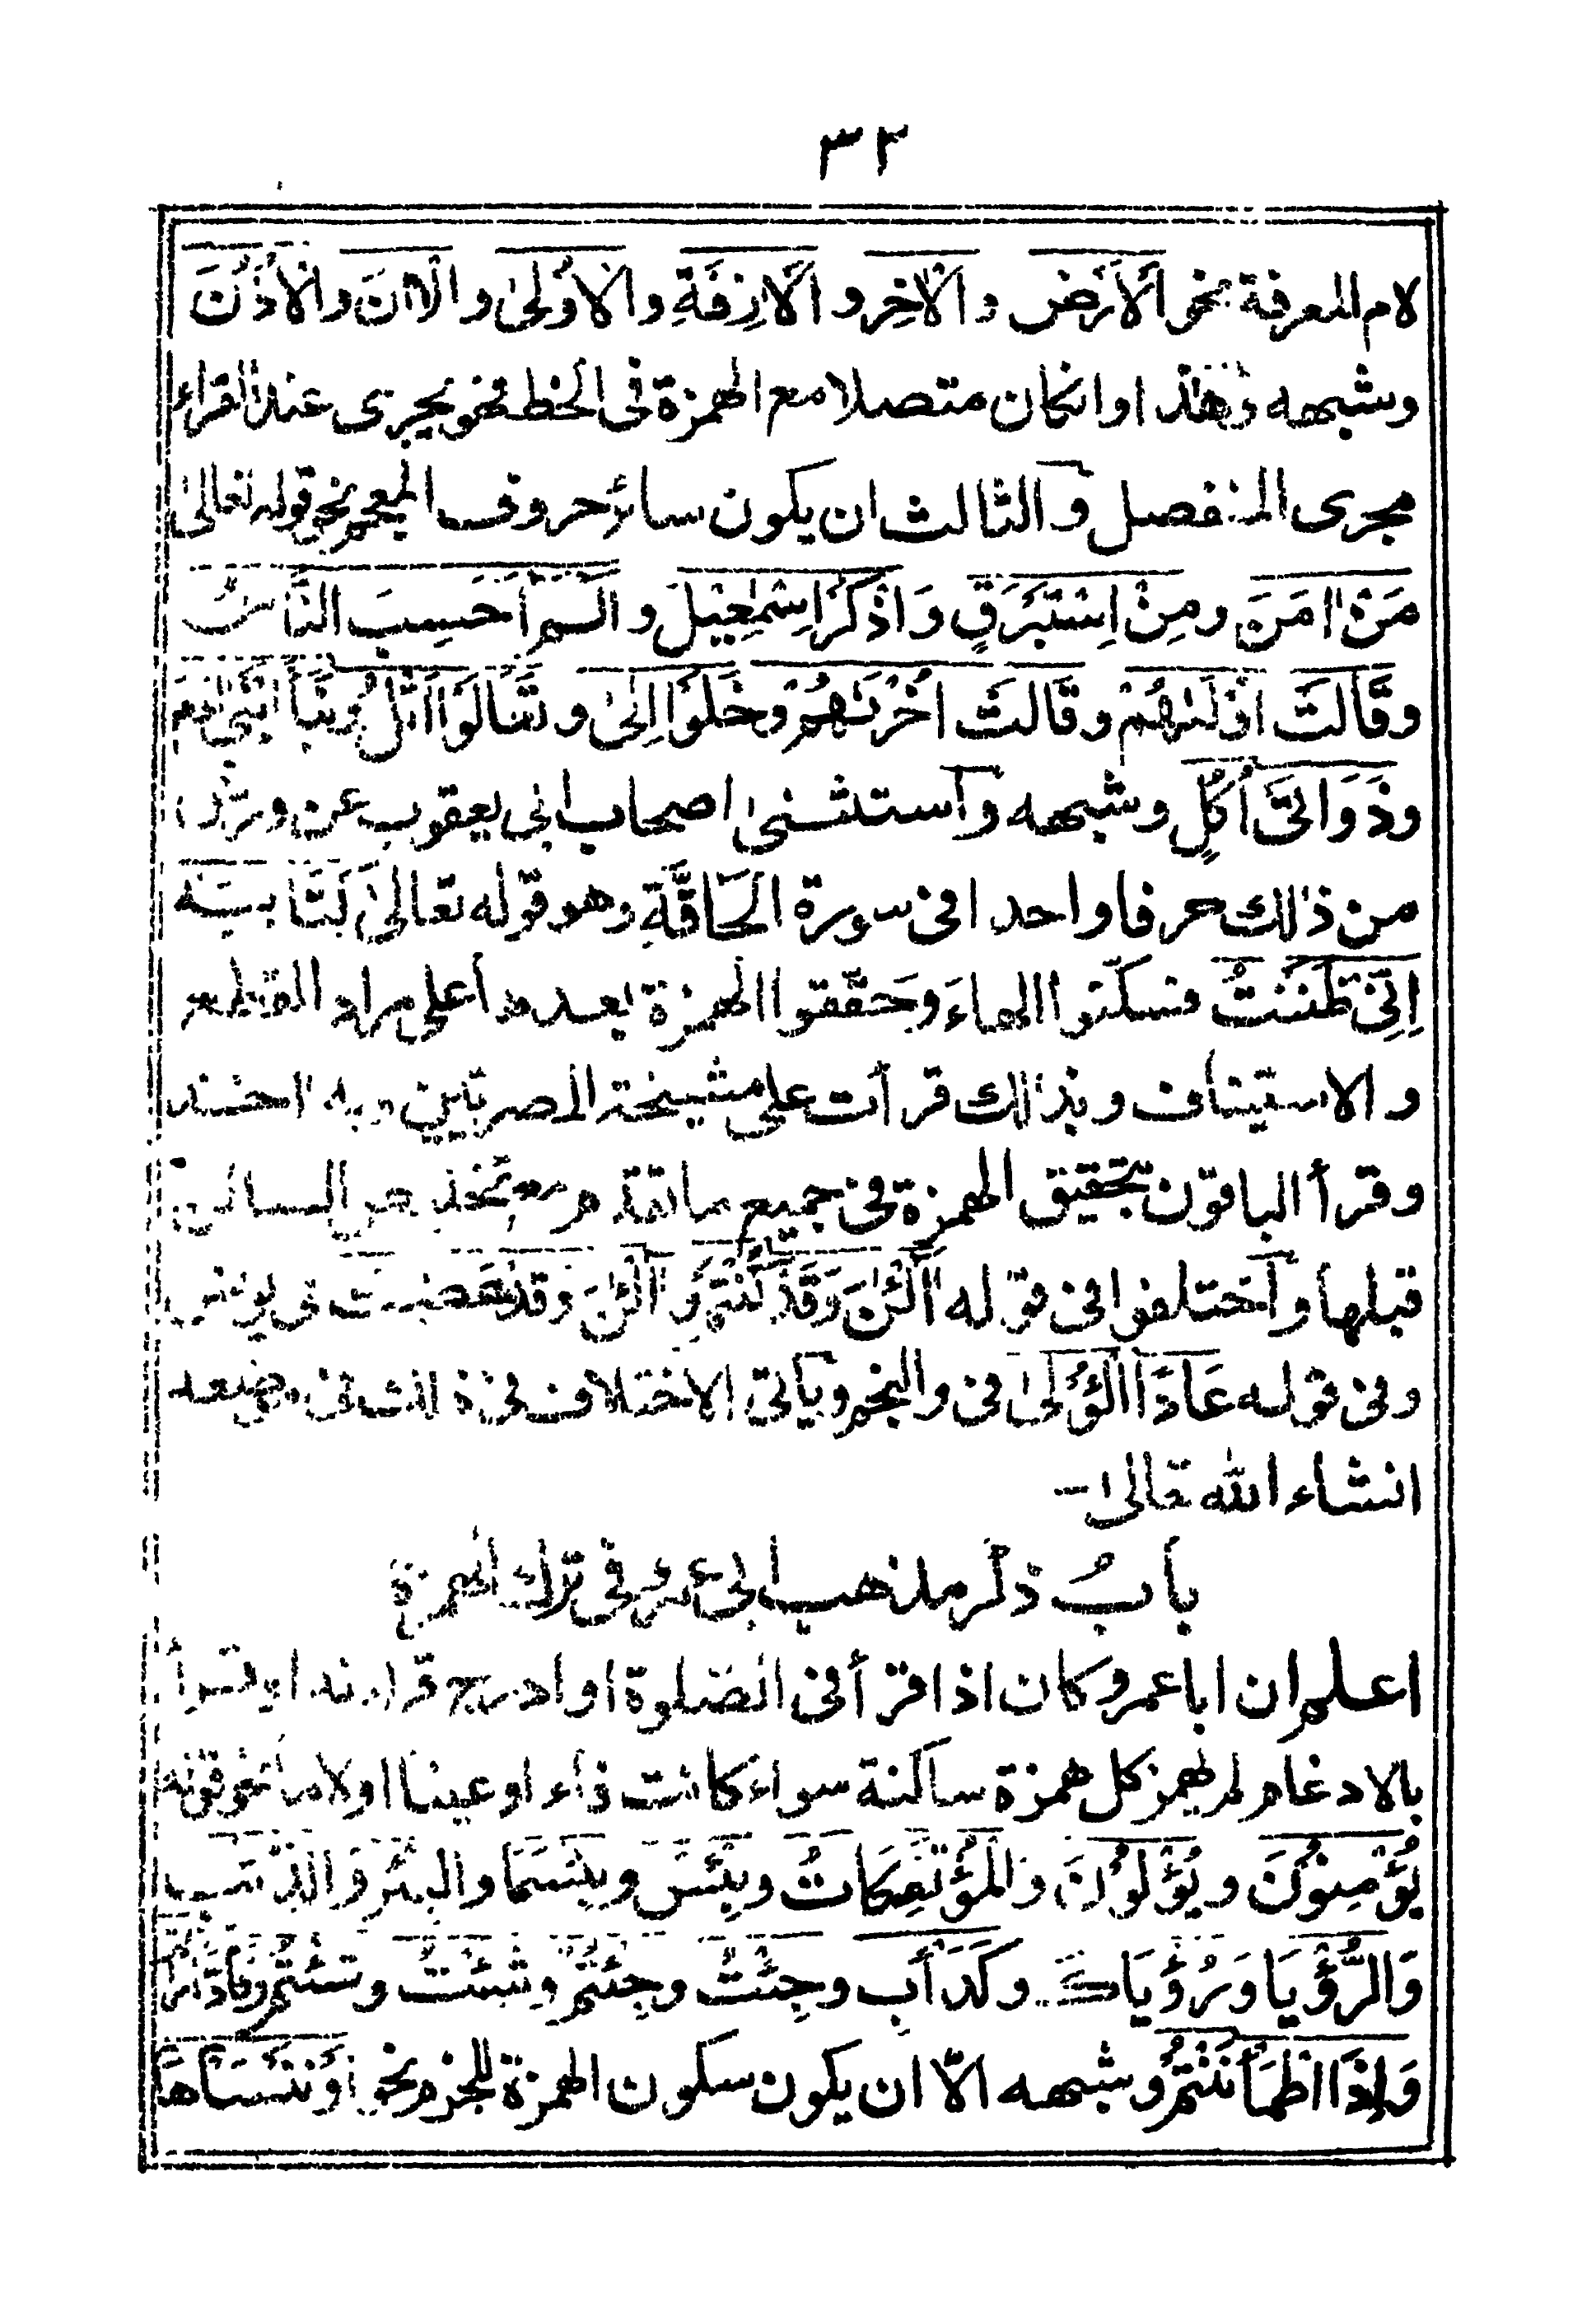 ٣٢
لام المعرفة نحو اَلْاَرْضِ و اَلْاٰخِر و اَلْاٰزِفَةِ و الْاُوْلىٰ و الْاٰنَ و الْاُذُنَ
وشبهه وهذا وانكان متصلا مع الهمزة فى الخط فهو يجرى عند القراء
مجرى المنفصل و الثالث ان يكون سائر حروف المعجم نحو قوله تعالىٰ
مَنْ اٰمَنَ ومِنْ اِسْتَبْرَقٍ وَاذْكُرْ اِسْمٰعِيْلَ و الٓمّٓ اَحَسِبَ النَّاسُ
وقَالَتْ اُوْلٰىهُمْ وقَالَتْ اُخْرٰىهُمْ وخَلَوْا اِلىٰ وتَعَالَوْا اَتْلُ ونَبَأَ ابْنَىْ اٰدَمَ
وذَوَاتَىْ اُكُلٍ وشبهه وآستثنىٰ اصحاب ابى يعقوب عن ورش
من ذلك حرفا واحدا فى سورة الحَاقَّةِ وهو قوله تعالىٰ كِتَابِيَهْ
اِنِّىْ ظَنَنْتُ فسكّنوا الهاءَ وحَقّقوا الهمزة بعدها على مراد القطع
و الاستيناف وبذٰلك قرأت على مشيخة المصريّين وبه اٰخذ
وقرأ الباقون بتحقيق الهمزة فى جميع ما تقدم مع تخفيف الساكن
قبلها وآختلفوا فى قوله آلْئٰنَ وَقَدْ كُنْتُمْ وَ آلْئٰنَ وَقَدْ عَصَيْتَ فى يونس
وفى قوله عَادًا الْاُوْلىٰ فى والنجم وياتى الاختلاف فى ذٰلك فى موضعه
انشاء الله تعالىٰ-
بابُ ذكر مذهب ابى عمرو فى ترك الهمزة
اعلم ان ابا عمرو كان اذا قرأ فى الصّلوة او ادرج قراءته او قرأ
بالادغام لم يهمز كل همزة ساكنة سواء كانت فاء او عينا او لاما نحو قوله
يُؤْمِنُوْنَ ويُؤْلُوْنَ وَالْمُؤْتَفِكَاتُ وبِئْسَ وبِئْسَمَا والْبِئْرِ وَالذِّئْبُ
وَالرُّؤْيَا وَرُؤْيَاكَ وكَدَأْبِ وجِئْتَ وجِئْتُمْ وشِئْتَ وشِئْتُمْ وفَادّٰرَأْتُمْ
وَاِذَا اطْمَأْنَنْتُمْ وشبهه الّا ان يكون سكون الهمزة للجزم نحو اَوْ نَنْسَأْهَا